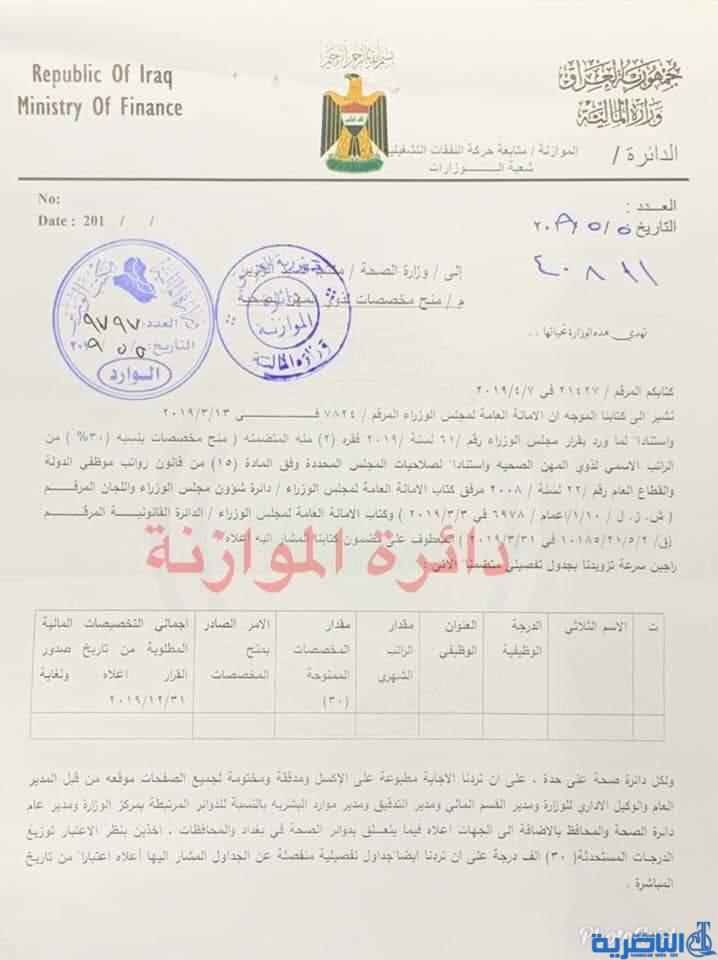 بسم الله الرحمن الرحيم
Republic Of Iraq
Ministry Of Finance
جمهورية العراق
وزارة المالية
الدائرة / الموازنة / متابعة حركة النفقات التشغيلية
شعبة الـــوزارات
No:
Date : 201 / /
العـــدد :
التاريخ ٢٠١٩/٥/٥
٤٠٨١١
الى / وزارة الصحة / مكتب السيد الوزير
م / منح مخصصات لذوي المهن الصحية
العدد: ٩٧٩٧
التاريخ: ٥/٥/٢٠١٩
الــوارد
جمهورية العراق
دائرة
الموازنة
وزارة المالية
تهدي هذه الوزارة تحياتها . .
كتابكم المرقم / ٢١٤٢٧ في ٢٠١٩/٤/٧
نشير الى كتابنا الموجه ان الامانة العامة لمجلس الوزراء المرقم / ٧٨٢٤ فـــي ٢٠١٩/٣/١٣
واستنادا" لما ورد بقرار مجلس الوزراء رقم /٦١ لسنة /٢٠١٩ فقره (٢) منه المتضمنه ( منح مخصصات بنسبه (٣٠%) من
الراتب الاسمي لذوي المهن الصحيه واستنادا" لصلاحيات المجلس المحددة وفق المادة (١٥) من قانون رواتب موظفي الدولة
والقطاع العام رقم /٢٢ لسنة / ٢٠٠٨ مرفق كتاب الامانة العامة لمجلس الوزراء / دائرة شؤون مجلس الوزراء واللجان المرقم
( ش. ز. ل /١/١٠/اعمام / ٦٩٧٨ في ٢٠١٩/٣/٣ ) وكتاب الامانة العامة لمجلس الوزراء / الدائرة القانونيــة المرقم
(ق/٢/٥/٢١/١٠١٨٥ في ٢٠١٩/٣/٣١ ) المعطوف على مضمون كتابنا المشار اليه اعلاه
دائرة الموازنة
راجين سرعة تزويدنا بجدول تفصيلي متضمنا" الاتي :
ت | الاسم الثلاثي | الدرجة الوظيفية | العنوان الوظيفي | مقدار الراتب الشهري | مقدار المخصصات الممنوحة (٣٠) | الامر الصادر بمنح المخصصات | اجمالي التخصيصات المالية المطلوبة من تاريخ صدور القرار اعلاه ولغاية ٢٠١٩/١٢/٣١
ولكل دائرة صحة على حدة ، على ان تردنا الاجابة مطبوعة على الإكسل ومدققة ومختومة لجميع الصفحات موقعه من قبل المدير
العام والوكيل الاداري للوزارة ومدير القسم المالي ومدير التدقيق ومدير موارد البشريه بالنسبة للدوائر المرتبطة بمركز الوزارة ومدير عام
دائرة الصحة والمحافظ بالاضافة الى الجهات اعلاه فيما يتعلق بدوائر الصحة في بغداد والمحافظات ، اخذين بنظر الاعتبار توزيع
الدرجات المستحدثة( ٣٠) الف درجة على ان تردنا ايضا"جداول تفصيلية منفصلة عن الجداول المشار اليها أعلاه اعتبارا" من تاريخ
المباشرة .
الناصرية
NASIRIYAH NEWS . NET